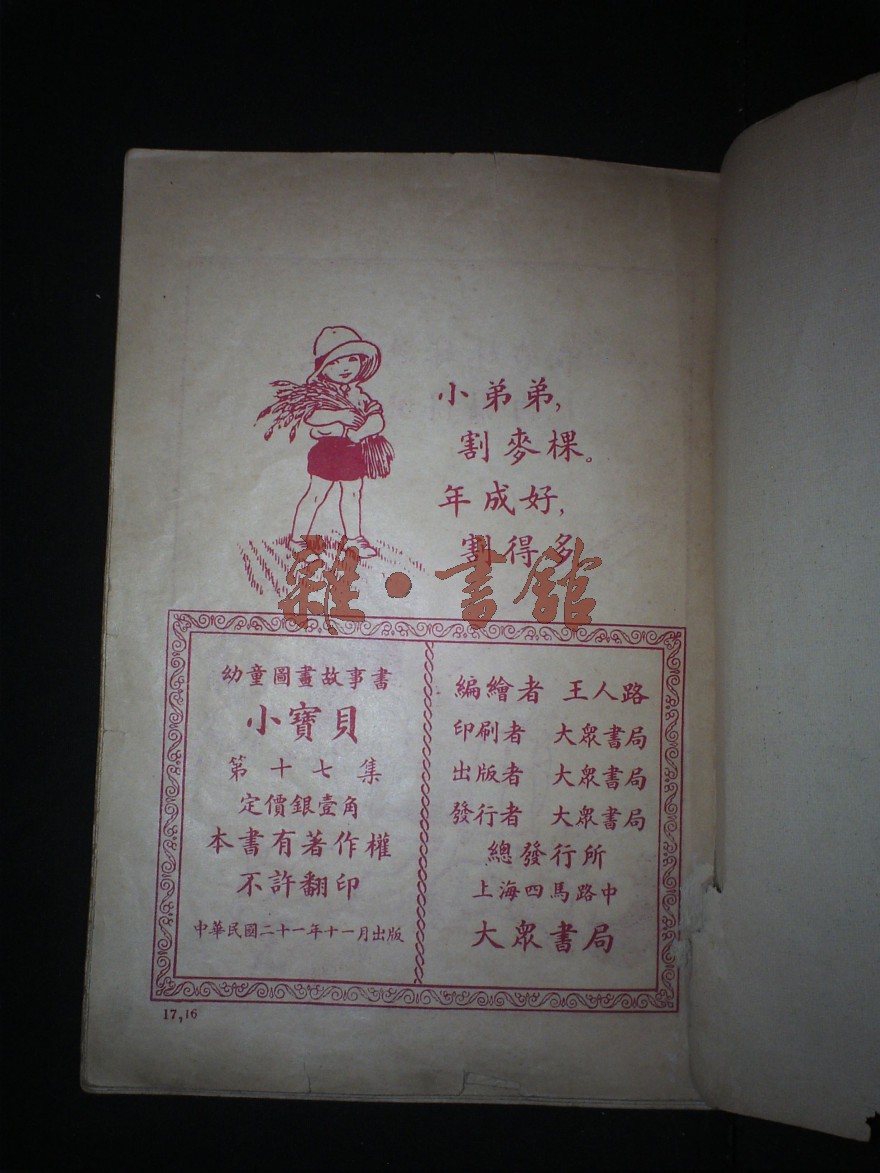 小弟弟，
割麥棵。
年成好，
割得多
雜·書館
幼童圖畫故事書
小寶貝
第十七集
定價銀壹角
本書有著作權
不許翻印
中華民國二十一年十一月出版
編繪者 王人路
印刷者 大眾書局
出版者 大眾書局
發行者 大眾書局
總發行所
上海四馬路中
大眾書局
17,16